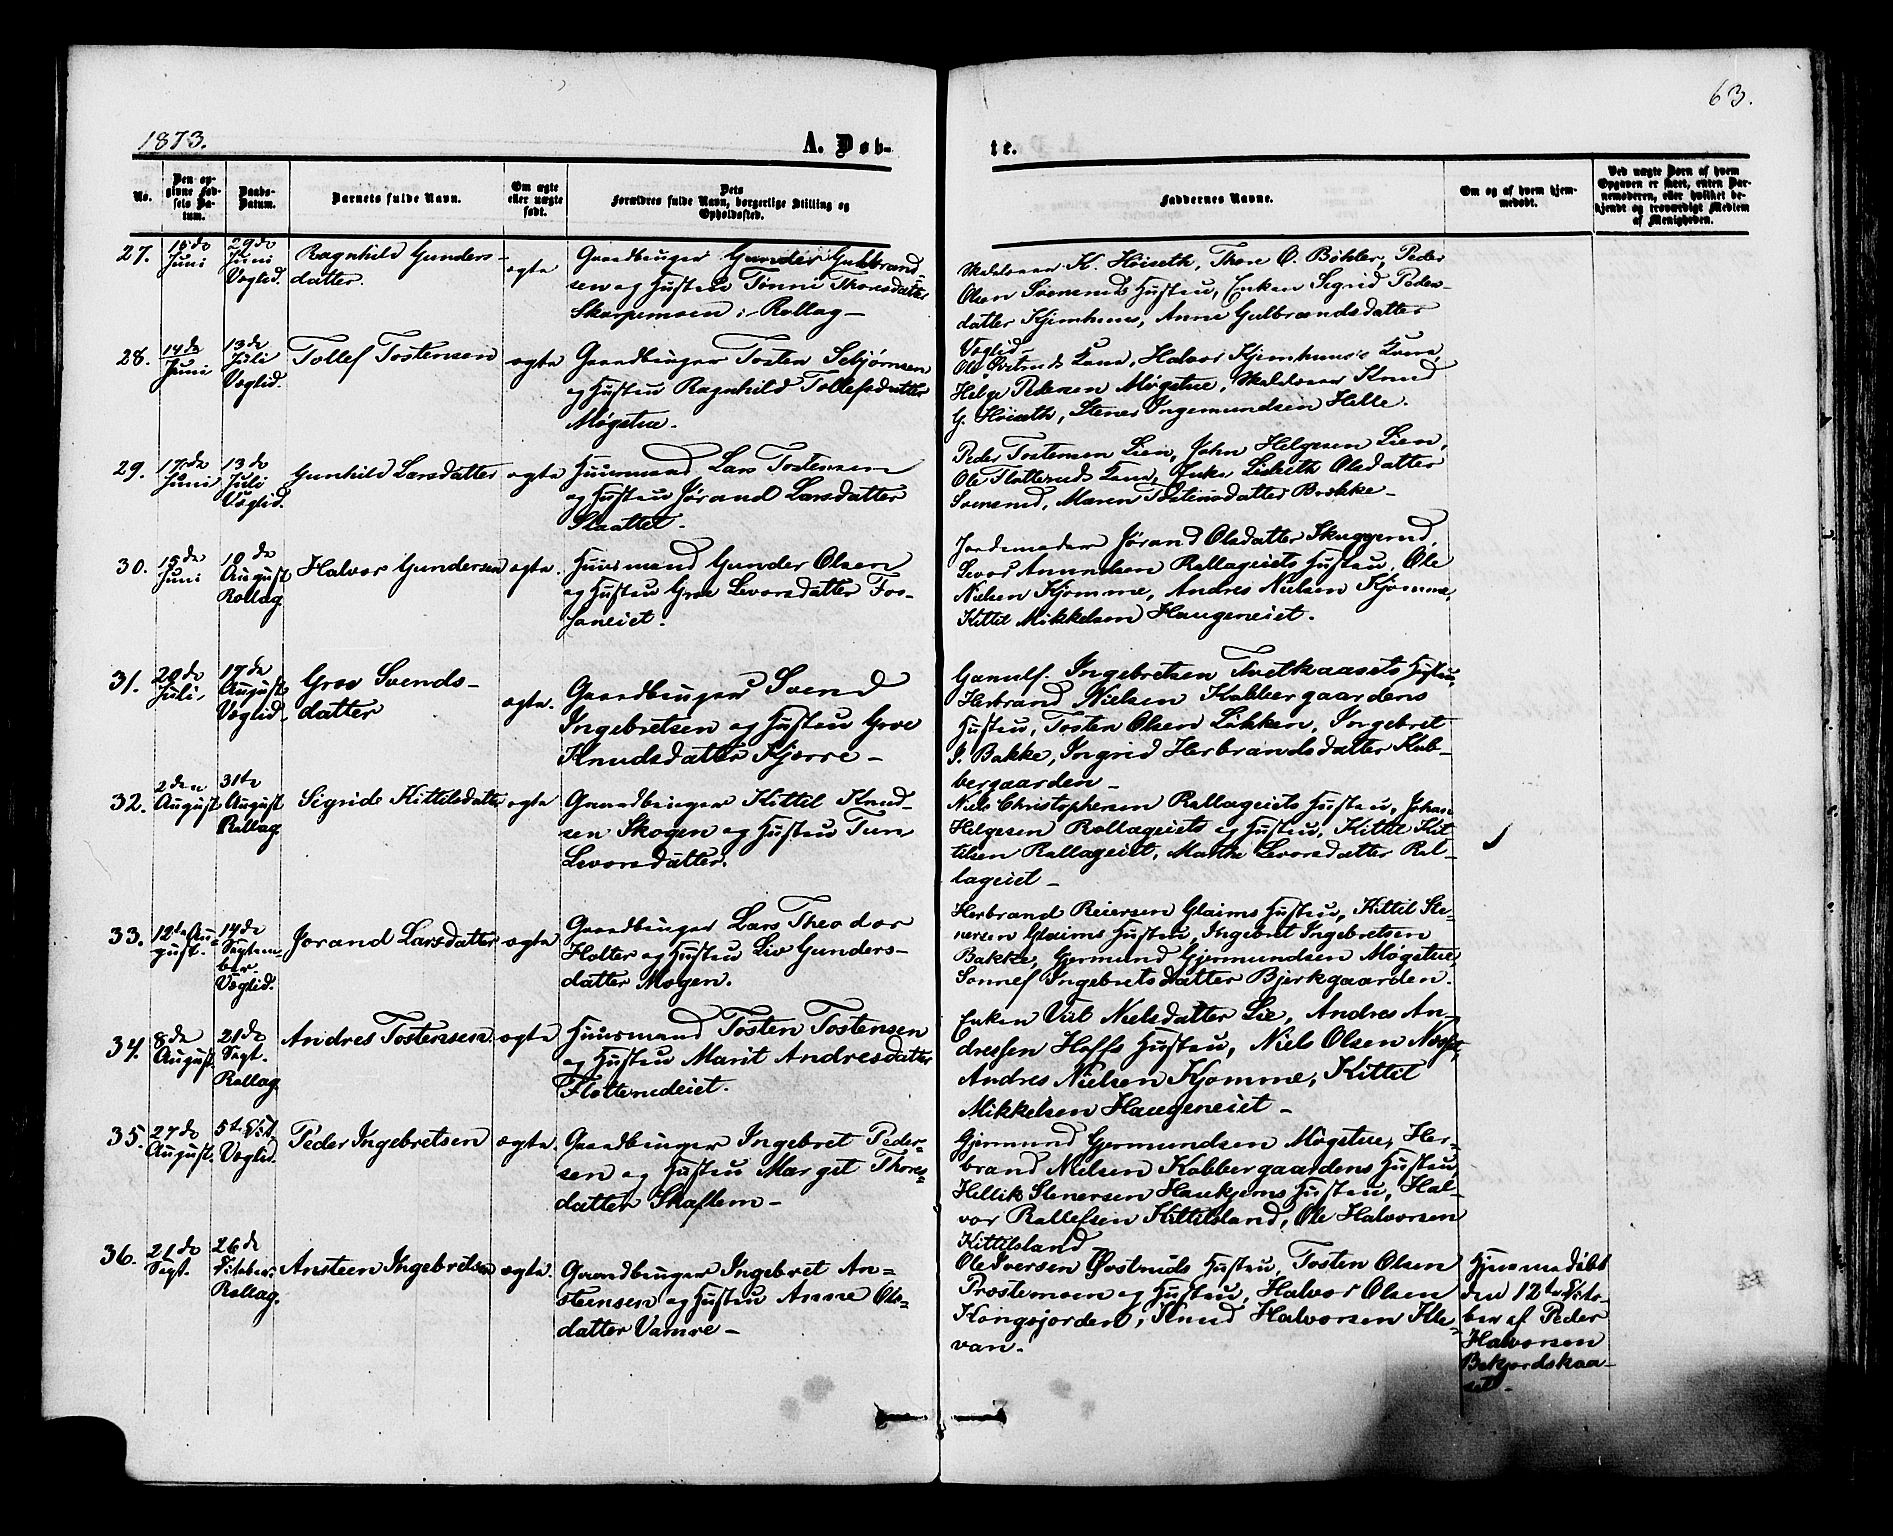 63.
1873.
A. Døb-
te.
No.
Den op-
givne Fød-
sels Da-
tum.
Daabs-
Datum.
Barnets fulde Navn.
Om ægte
eller uægte
født.
Dets
Forældres fulde Navn, borgerlige Stilling og
Opholdssted.
Faddernes Navne.
Om og af hvem hjem-
medøbt.
Ved uægte Børn af hvem
Opgaven er skeet, enten Bar-
nemoderen, eller hvilket be-
kjendt og troværdigt Medlem
af Menigheden.
27.
15de
Juni
29de
Juni
Væglid.
Ragnhild Gunders-
datter.
ægte
Gaardbruger Gunder Gulbrand-
sen og Hustru Tønni Thoresdatter
Skarpemoen i Rollag-
K. Høiseth, Thore O. Bøhler, Peder
Olsen Hustru, Enken Sigrid Peders-
datter Kjemhuus, Anne Gulbrandsdatter
Væglid-
28.
14de
Juni
13de
Juli
Væglid.
Tollef Tostensen
ægte
Gaardbruger Tosten Sebjørnsen
og Hustru Ragnhild Tollefsdatter
Møgstue.
Ole Kone, Halvor Kjemhuus's Kone,
Helge Pedersen Møgstue, Knud
G. Høiseth, Stener Ingemundsen Helle.
29.
17de
Juni
13de
Juli
Væglid.
Gunhild Larsdatter
ægte
Huusmand Lars Tostensen
og Hustru Jørand Larsdatter
Slaattet.
Peder Tostensen Lien, John Helgesen Lien,
Ole Flotteruds Kone, Enke Lisbeth Olsdatter
Maren Tostensdatter Brekke-
30.
15de
Juni
10de
August
Rollag
Halvor Gundersen
ægte.
Huusmand Gunder Olsen
og Hustru Groe Levorsdatter Fos-
saneiet.
Jordemoder Jørand Olsdatter Skuggerud,
Levor Amundsen Rollageiets Hustru, Ole
Nielsen Kjomme, Andres Nielsen Kjomme,
Kittil Mikkelsen Haugeneiet.
31.
20de
Juli
17de
August
Væglid-
Groe Svends-
datter
ægte.
Gaardbruger Svend
Ingebretsen og Hustru Groe
Knudsdatter Kjærre-
Gamulf. Ingebretsen Tvetkaasets Hustru,
Herbrand Nielsen Kobbergaardens
Hustru, Tosten Olsen Løkken, Ingebret
I. Bakke, Ingrid Herbrandsdatter Kob-
bergaarden-
32.
2den
August
31te
August
Rollag
Sigrid Kittilsdatter
ægte
Gaardbruger Kittil Knud-
sen Skogen og Hustru Tun
Levorsdatter.
Niels Christophersen Rollageiets Hustru, Johan
Helgesen Rollageiets og Hustru, Kittil Kit-
tilsen Rollageiet, Marthe Levorsdatter Rol-
lageiet-
33.
12te Au-
gust.
14de
Septem-
ber.
Væglid.
Jorand Larsdatter
ægte
Gaardbruger Lars Theodor
Holter og Hustru Liv Gunders-
datter Mogen.
Herbrand Reiersen Glaims Hustru, Kittil Ste-
nersen Glaims Hustru, Ingebret Ingebretsen
Bakke, Germund Gjermundsen Møgstue,
Sønnef Ingebretsdatter Bjerkgaarden.
34.
8de
August.
21de
Sept.
Rollag
Andres Tostensen
ægte
Huusmand Tosten Tostensen
og Hustru Marit Andresdatter
Flotterudeiet.
Enken Nielsdatter Lie, Andres An-
dressen Hoffs Hustru, Niels Olsen
Andres Nielsen Kjomme, Kittil
Mikkelsen Haugeneiet-
35.
27de
August.
5te Oct.
Væglid.
Peder Ingebretsen
ægte.
Gaardbruger Ingebret Peder-
sen og Hustru Margit Thores-
datter Skaflem-
Gjermund Gjermundsen Møgstue, Her-
brand Nielsen Kobbergaardens Hustru
Hellik Stenersen Haukjems Hustru, Hal-
vor Rollefsen Kittilsland, Ole Halvorsen
Kittilsland
36.
21de
Sept.
26de
Oktober.
Rollag.
Ansteen Ingebretsen
ægte.
Gaardbruger Ingebret An-
steensen og Hustru Anne Ols-
datter Vamre-
Ole Iversen Østruds Hustru, Tosten Olsen
Prostemoen og Hustru, Halvor Olsen
Kongsjorden, Knud Halvorsen Kle-
van.
Hjemmedøbt
den 12te Okto-
ber af Peder
Halvorsen
Bekjordskaa-
set-